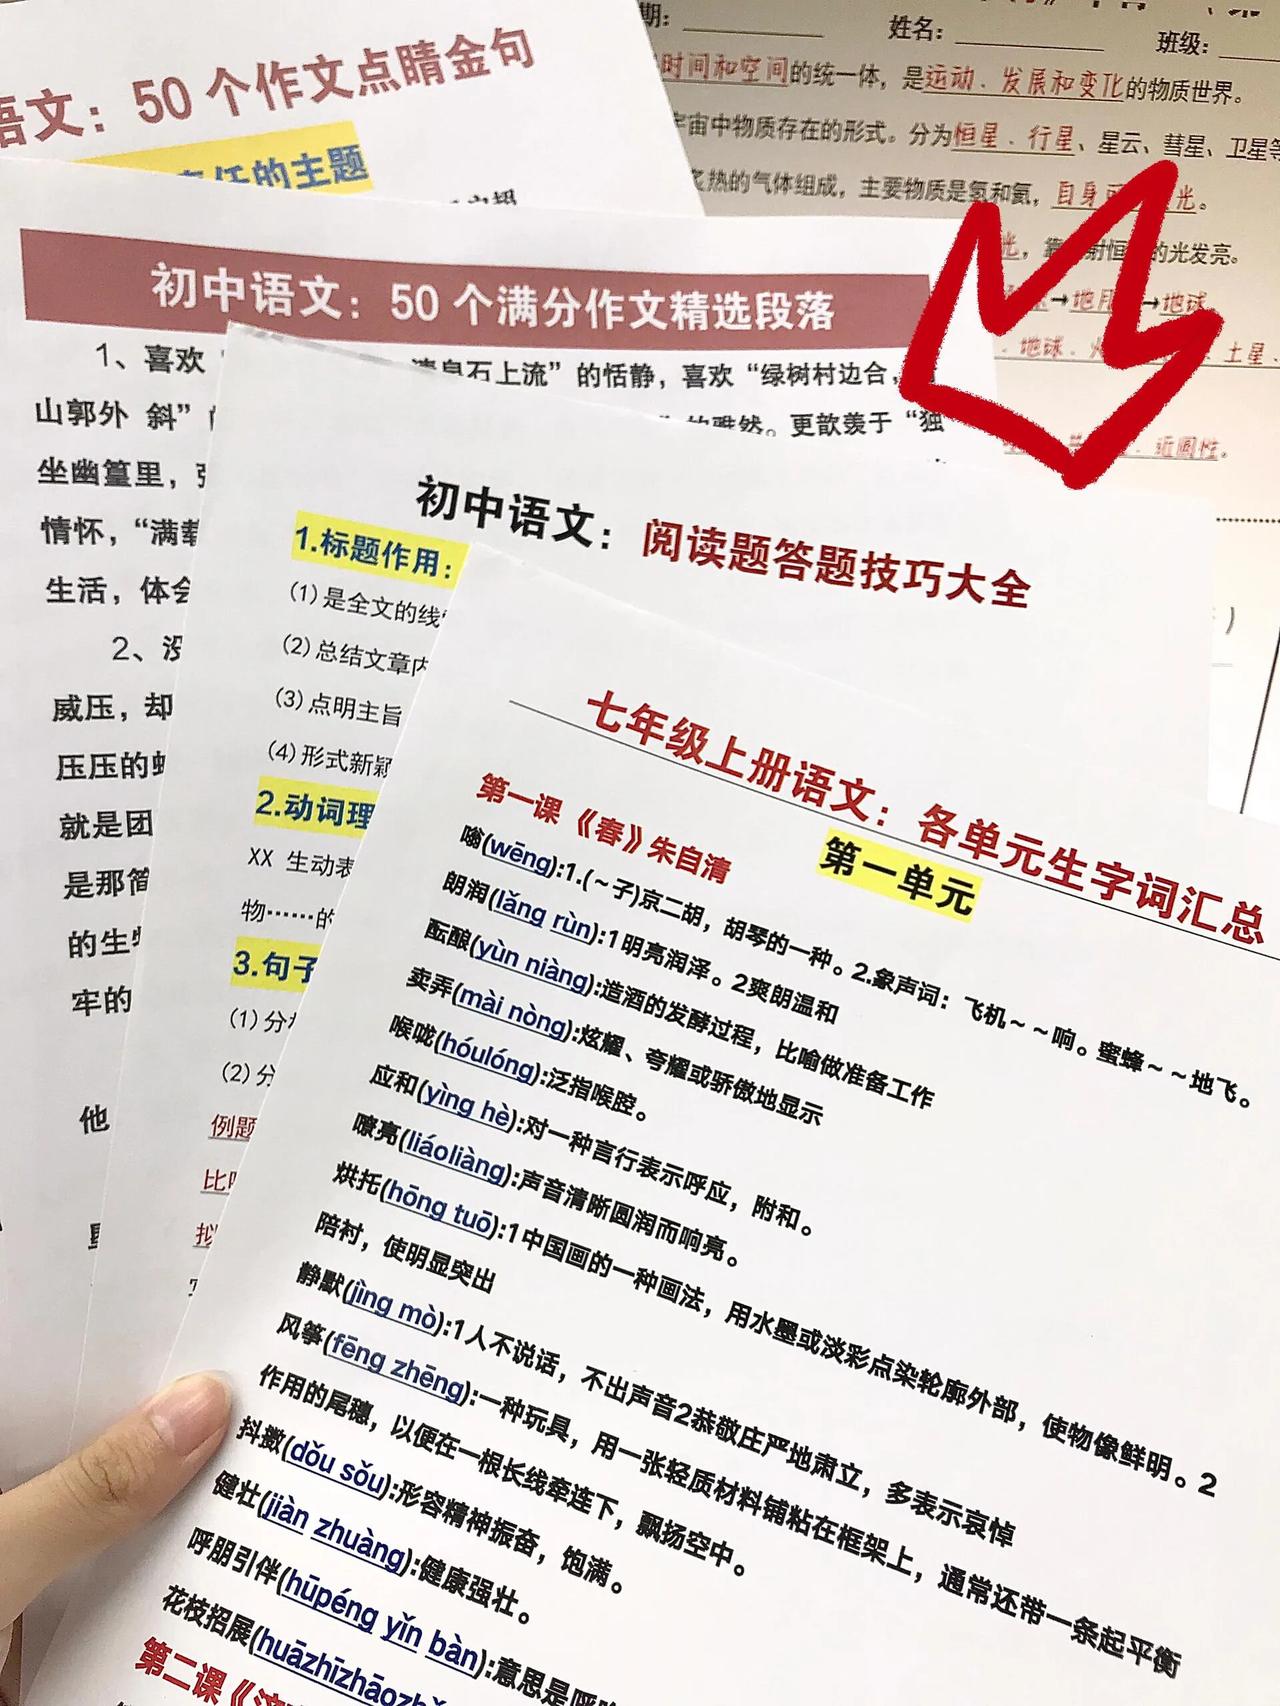 语文：50个作文点睛金句
责任的主题
期：
姓名：
班级：
时间和空间的统一体，是运动、发展和变化的物质世界。
宇宙中物质存在的形式。分为恒星、行星、星云、彗星、卫星等
炙热的气体组成，主要物质是氢和氦，自身 光。
光，靠 射恒 的光发亮。
→地月 →地球
地球、 土星、
近圆性。
初中语文：50个满分作文精选段落
1、喜欢 清泉石上流”的恬静，喜欢“绿树村边合，
山郭外 斜” 的雅然。更歆羡于“独
坐幽篁里，
情怀，“满载
生活，体会
2、没
威压，却
压压的
就是团
是那简
的生
牢的
他
初中语文：阅读题答题技巧大全
1.标题作用：
(1)是全文的线
(2)总结文章内
(3)点明主旨
(4)形式新颖
2.动词理
XX 生动表
物……的
3.句子
(1)分
(2)分
例题
比
拟
七年级上册语文：各单元生字词汇总
第一单元
第一课《春》朱自清
嗡(wēng):1.(～子)京二胡，胡琴的一种。2.象声词：飞机～～响。蜜蜂～～地飞。
朗润(lǎng rùn):1明亮润泽。2爽朗温和
酝酿(yùn niàng):造酒的发酵过程，比喻做准备工作
卖弄(mài nòng):炫耀、夸耀或骄傲地显示
喉咙(hóulóng):泛指喉腔。
应和(yìng hè):对一种言行表示呼应，附和。
嘹亮(liáoliàng):声音清晰圆润而响亮。
烘托(hōng tuō):1中国画的一种画法，用水墨或淡彩点染轮廓外部，使物像鲜明。2
陪衬，使明显突出
静默(jìng mò):1人不说话，不出声音2恭敬庄严地肃立，多表示哀悼
风筝(fēng zhēng):一种玩具，用一张轻质材料铺粘在框架上，通常还带一条起平衡
作用的尾穗，以便在一根长线牵连下，飘扬空中。
抖擞(dǒu sǒu):形容精神振奋，饱满。
健壮(jiàn zhuàng):健康强壮。
呼朋引伴(hūpéng yǐn bàn):意思是呼
花枝招展(huāzhīzhāozh
第二课《济